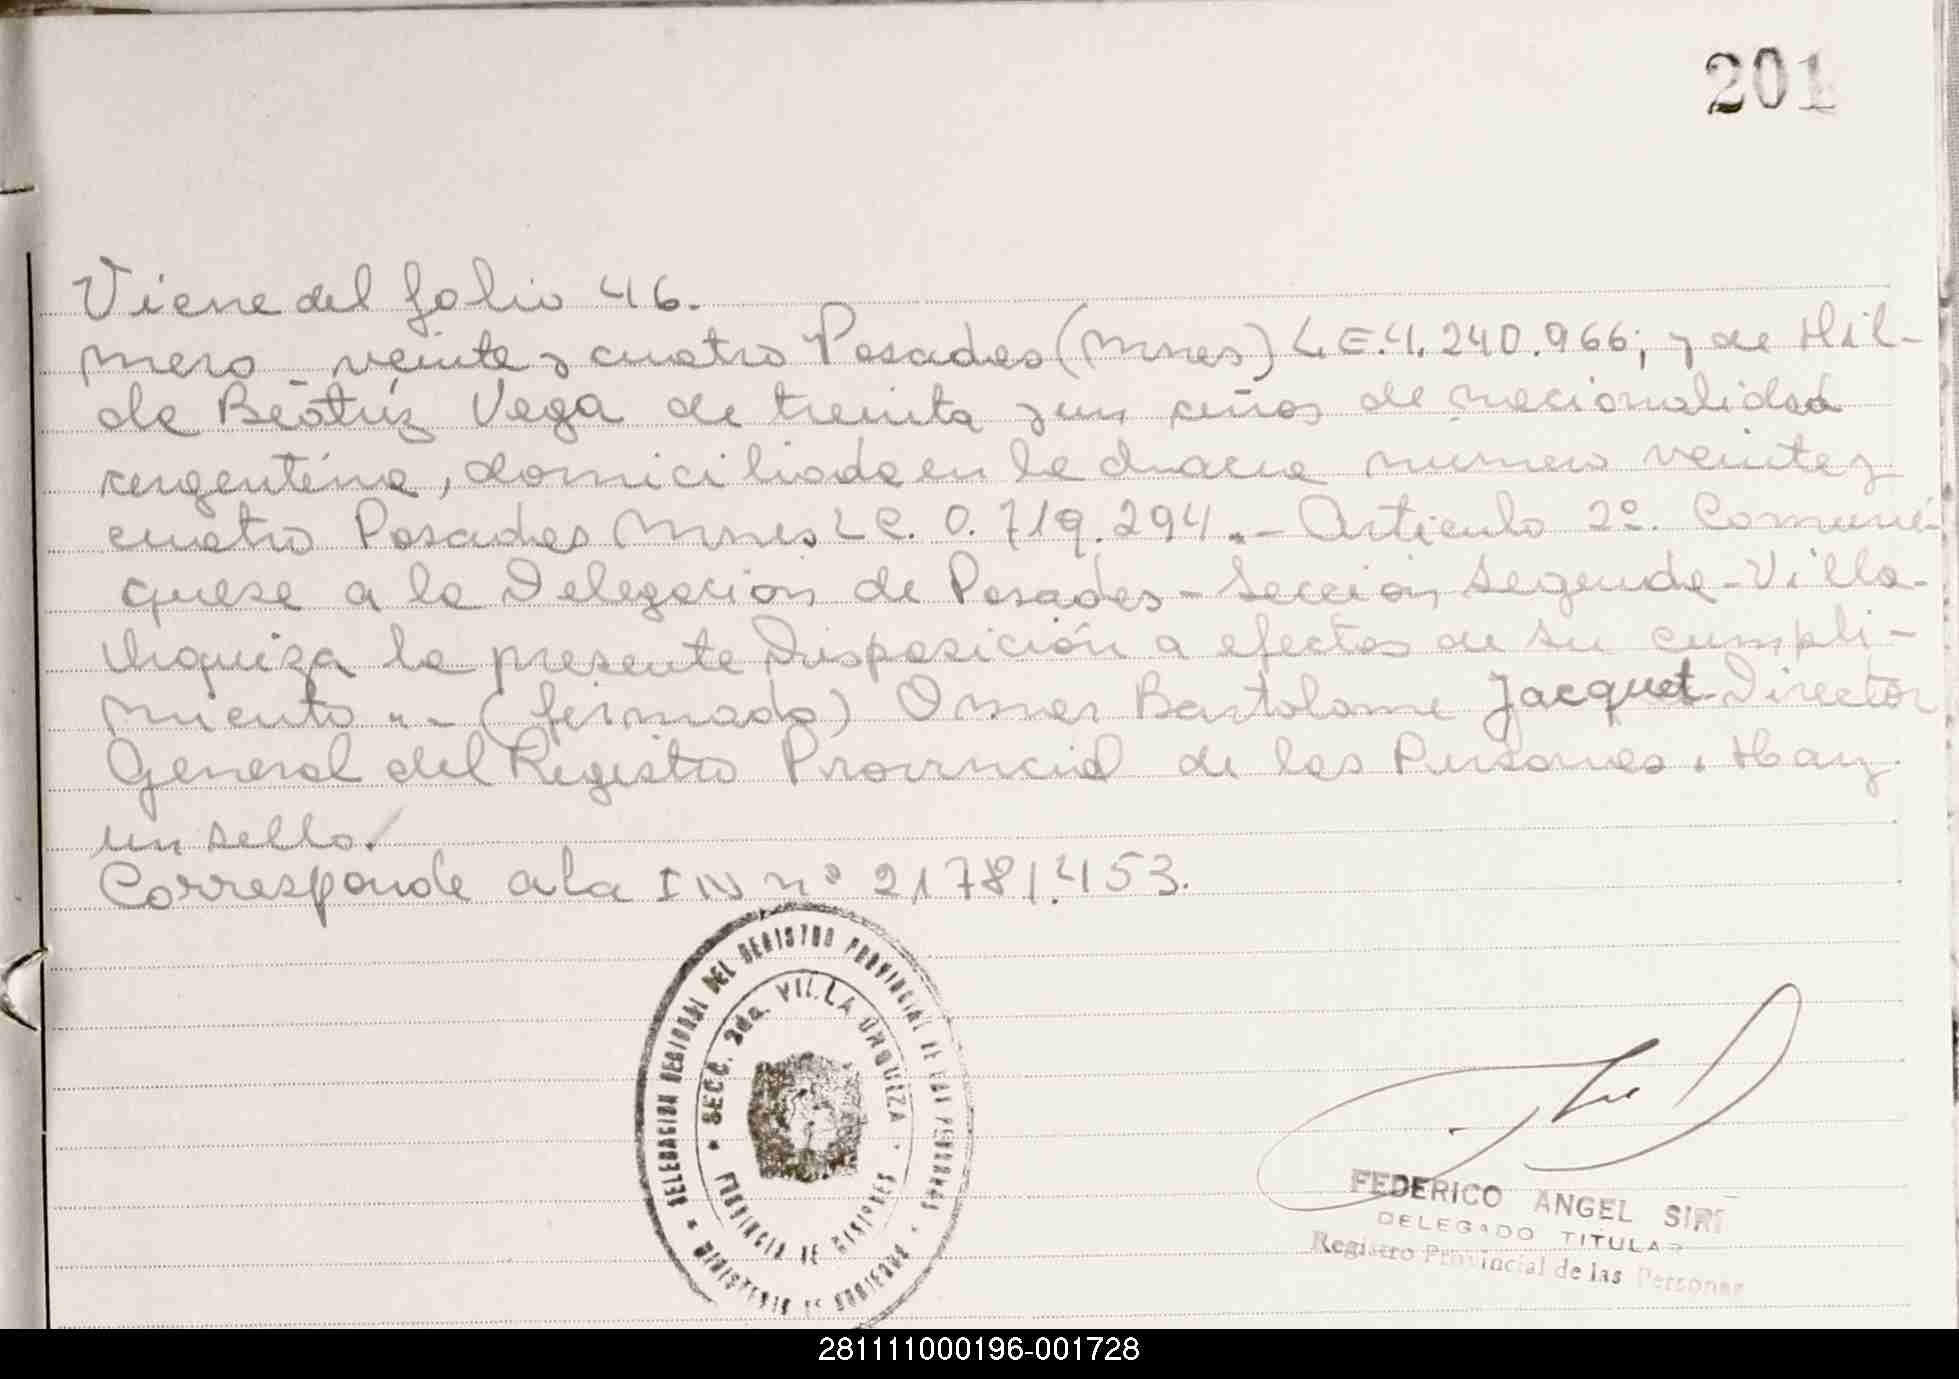 201
Viene del folio 46.
mero veinte y cuatro Posadas (Mnes) L.E.4.240.966; y de Hil-
da Beatriz Vega de treinta y un años de nacionalidad
argentina, domiciliada en la chacra número veinte y
cuatro Posadas Mnes L C. 0.719.294.- Articulo 2º. Comuní-
quese a la Delegación de Posadas - Sección Segunda - Villa
Urquiza la presente Disposición a efectos de su cumpli-
miento.- (firmado) Omar Bartolome Jacquet Director
General del Registro Provincial de las Personas. Hay
un sello.
Corresponde a la IN nº 21781.453.
DELEGACION REGIONAL DEL REGISTRO PROVINCIAL DE LAS PERSONAS
SECC. 2da. VILLA URQUIZA
PROVINCIA DE MISIONES
MINISTERIO DE GOBIERNO
FEDERICO ANGEL SIRI
DELEGADO TITULAR
Registro Provincial de las Personas
281111000196-001728